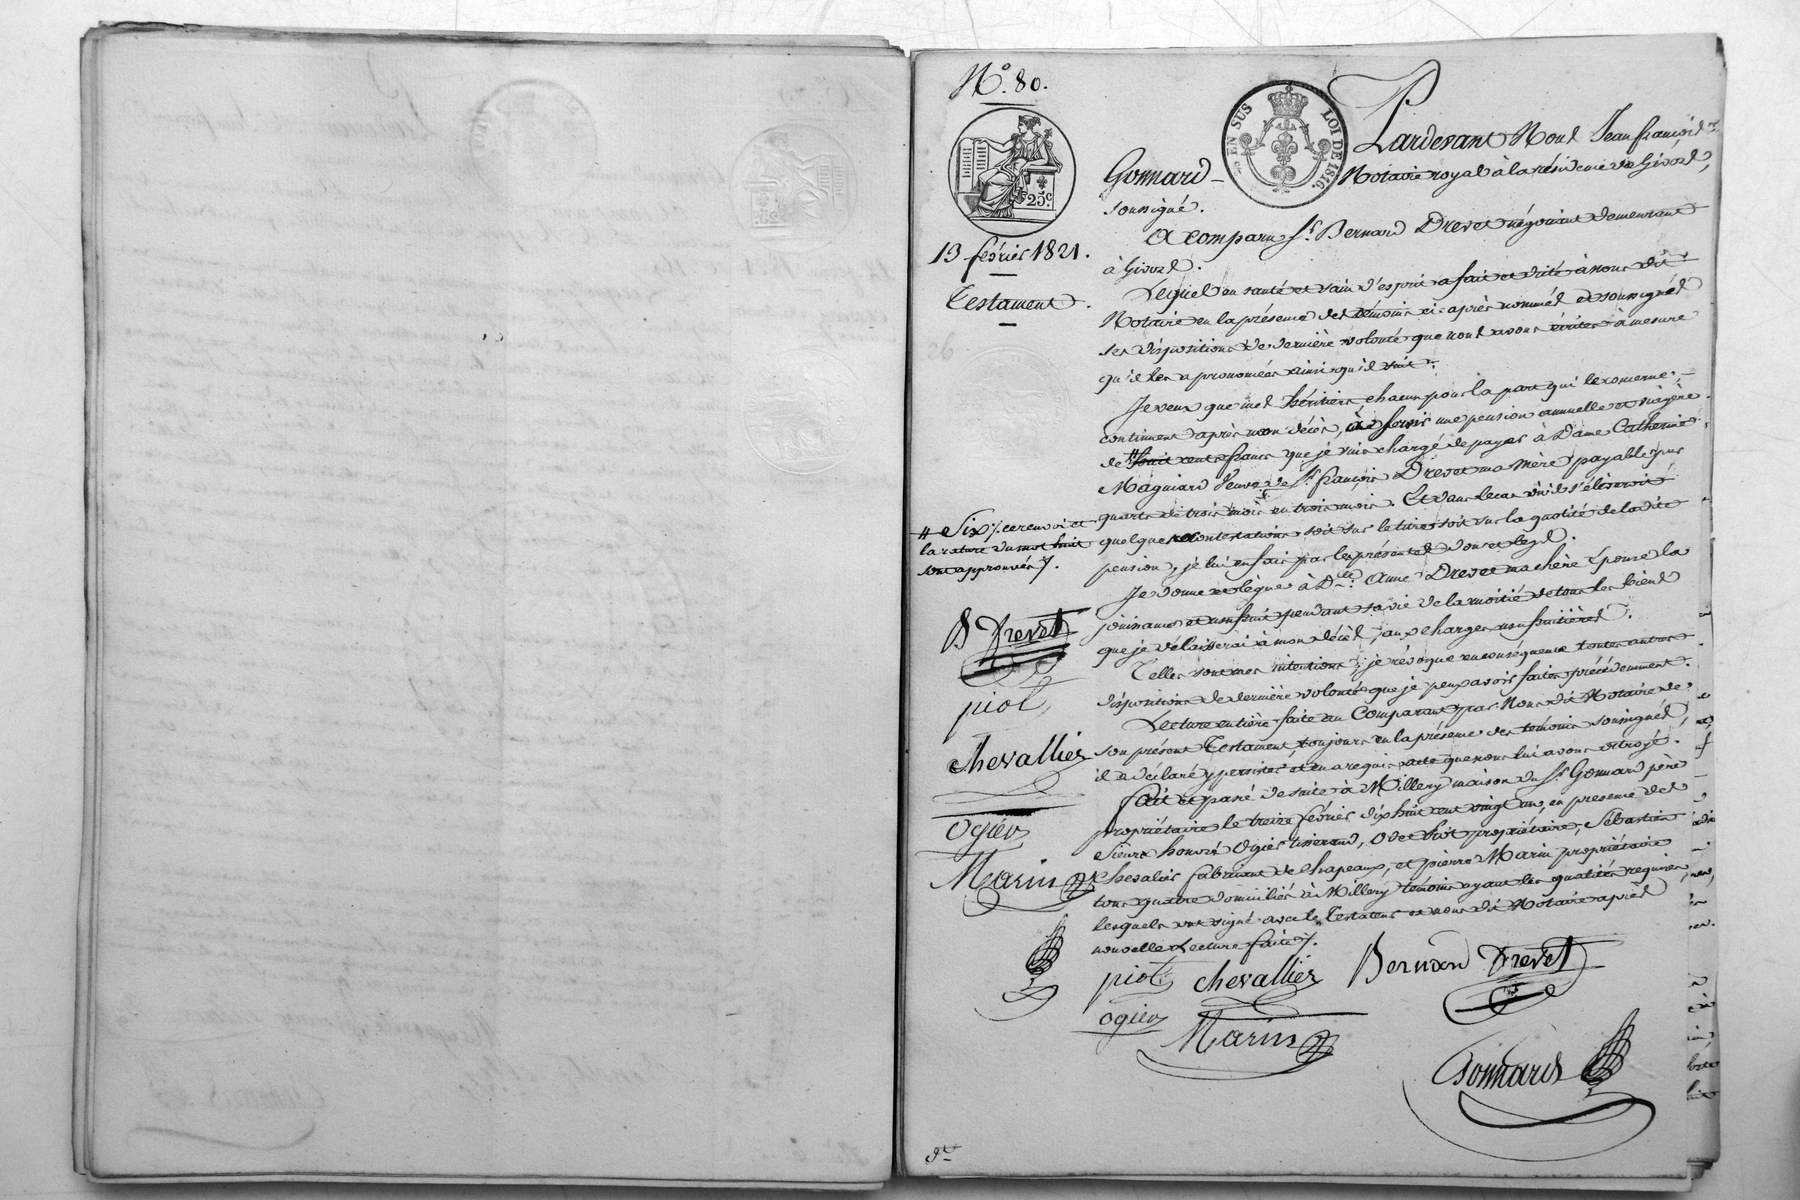 N.° 80.
EN SUS
LOI DE 1816.
25.c
13 février 1821.
Testament.
Pardevant Nous Jean françois
Gonnard Notaire royal à la résidence de Givors,
soussigné.
A comparu Sr. Bernard Drevet négociant demeurant
à Givors.
Lequel en santé et sain d'esprit a fait et dicté à nous dit
Notaire en la présence des témoins ci-après nommés et soussignés
ses dispositions de dernière volonté que nous avons écrites à mesure
qu'il les a prononcées ainsi qu'il suit.
Je veux que mes héritiers chacun pour la part qui le concerne,
continuent après mon décès, à servir une pension annuelle et viagère
de # huit cents francs que je suis chargé de payer à Dame Catherine
Magniard Veuve de Sr. françois Drevet ma Mère payable par
quarts de trois mois en trois mois. Et dans le cas où il s'éleveroit
quelques contestations soit sur le titre soit sur la quotité de ladite
pension, je lui en fais par les présentes don et legs.
Je donne et lègue à D.lle Anne Drevet ma chère Épouse la
jouissance et usufruit pendant sa vie de la moitié de tous les biens
que je délaisserai à mon décès, aux charges usufruitières.
Telles sont mes intentions; je révoque en conséquence toutes autres
dispositions de dernière volonté que je peux avoir faites précédemment.
Lecture entière faite au Comparant par Nous dit Notaire de
son présent Testament, toujours en la présence des témoins soussignés,
il a déclaré y persister et en a requis acte que nous lui avons octroyé.
fait et passé de suite à Millery maison du Sr. Gonnard père
propriétaire le treize février dix huit cent vingt un, en présence des
Sieurs honoré Ogier tisserand, Piot propriétaire, Sébastien
Chevalier fabricant de chapeaux, et pierre Marin propriétaire
tous quatre domiciliés à Millery témoins ayant les qualités requises,
lesquels ont signé avec le Testateur et nous dit Notaire après
nouvelle Lecture faite.
# Six, ce renvoi et
la rature du mot huit
sont approuvés.
B Drevet
piot
chevallier
ogier
Marin
piot chevallier Bernard Drevet
ogier
Marin
Gonnard